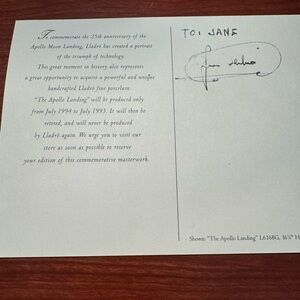 To commemorate the 25th anniversary of the
Apollo Moon Landing, Lladró has created a portrait
of the triumph of technology.
This great moment in history also represents
a great opportunity to acquire a powerful and unique
handcrafted Lladró fine porcelain.
"The Apollo Landing" will be produced only
from July 1994 to July 1995. It will then be
retired, and will never be produced
by Lladró again. We urge you to visit our
store as soon as possible to reserve
your edition of this commemorative masterwork.
TO: JANE
Shown: "The Apollo Landing" L6168G, 16¼" H